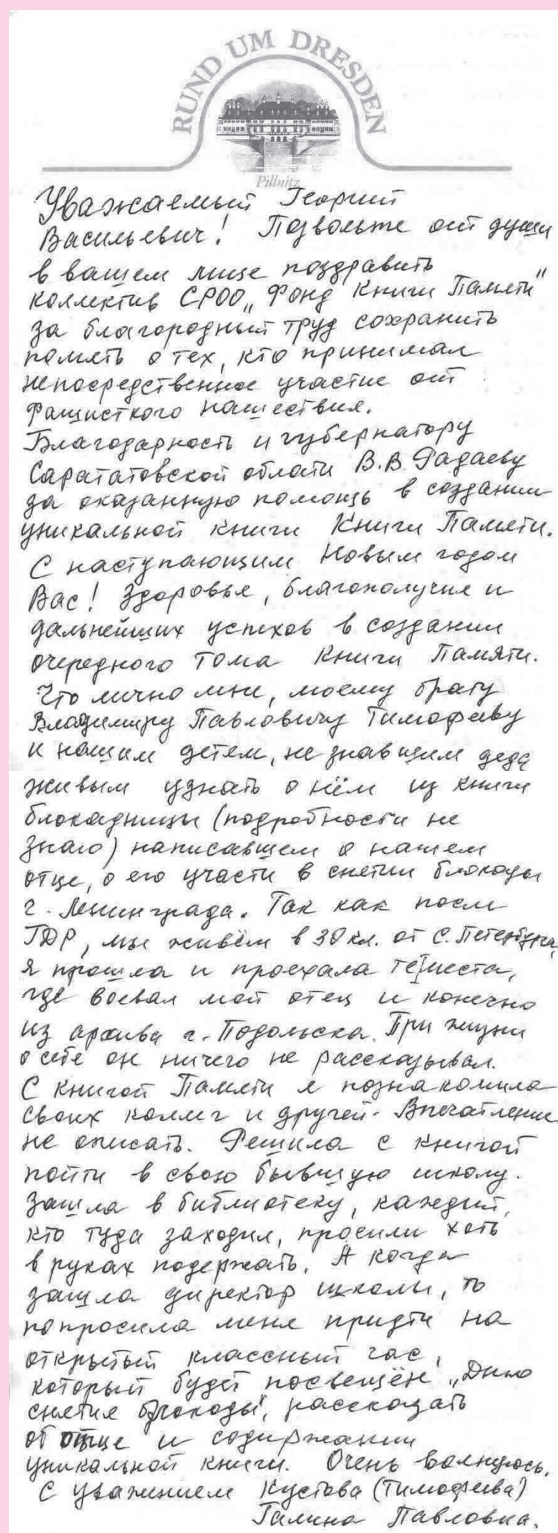 RUND UM DRESDEN
Pillnitz
Уважаемый Георгий
Васильевич! Позвольте от души
в вашем лице поздравить
коллектив СРОО „Фонд Книги Памяти"
за благородный труд сохранить
память о тех, кто принимал
непосредственное участие от
фашисткого нашествия.
Благодарность и губернатору
Саратавской области В.В. Радаеву
за оказанную помощь в создании
уникальной книги Книги Памяти.
С наступающим Новым годом
Вас! Здоровья, благополучия и
дальнейших успехов в создании
очередного тома Книги Памяти.
Что лично мне, моему брату
Владимиру Павловичу Тимофееву
и нашим детям, не знавшим деда
живым узнать о нём из книги
блокадницы (подробности не
знаю) написавшем о нашем
отце, о его участи в снятии блокады
г. Ленинграда. Так как после
ГДР, мы живём в 30 км. от С. Петербурга,
я прошла и проехала те места,
где воевал мой отец и конечно
из архива г. Подольска. При жизни
о себе он ничего не рассказывал.
С книгой Памяти я познакомила
своих коллег и друзей. Впечатление
не описать. Решила с книгой
пойти в свою бывшую школу.
Зашла в библиотеку, каждый,
кто туда заходил, просили хоть
в руках подержать. А когда
зашла директор школы, то
попросила меня придти на
открытый классный час,
который будет посвещён „Дню
снятие блокады", рассказать
об отце и содержании
уникальной книги. Очень волнуюсь.
С уважением Кустова (Тимофеева)
Галина Павловна.